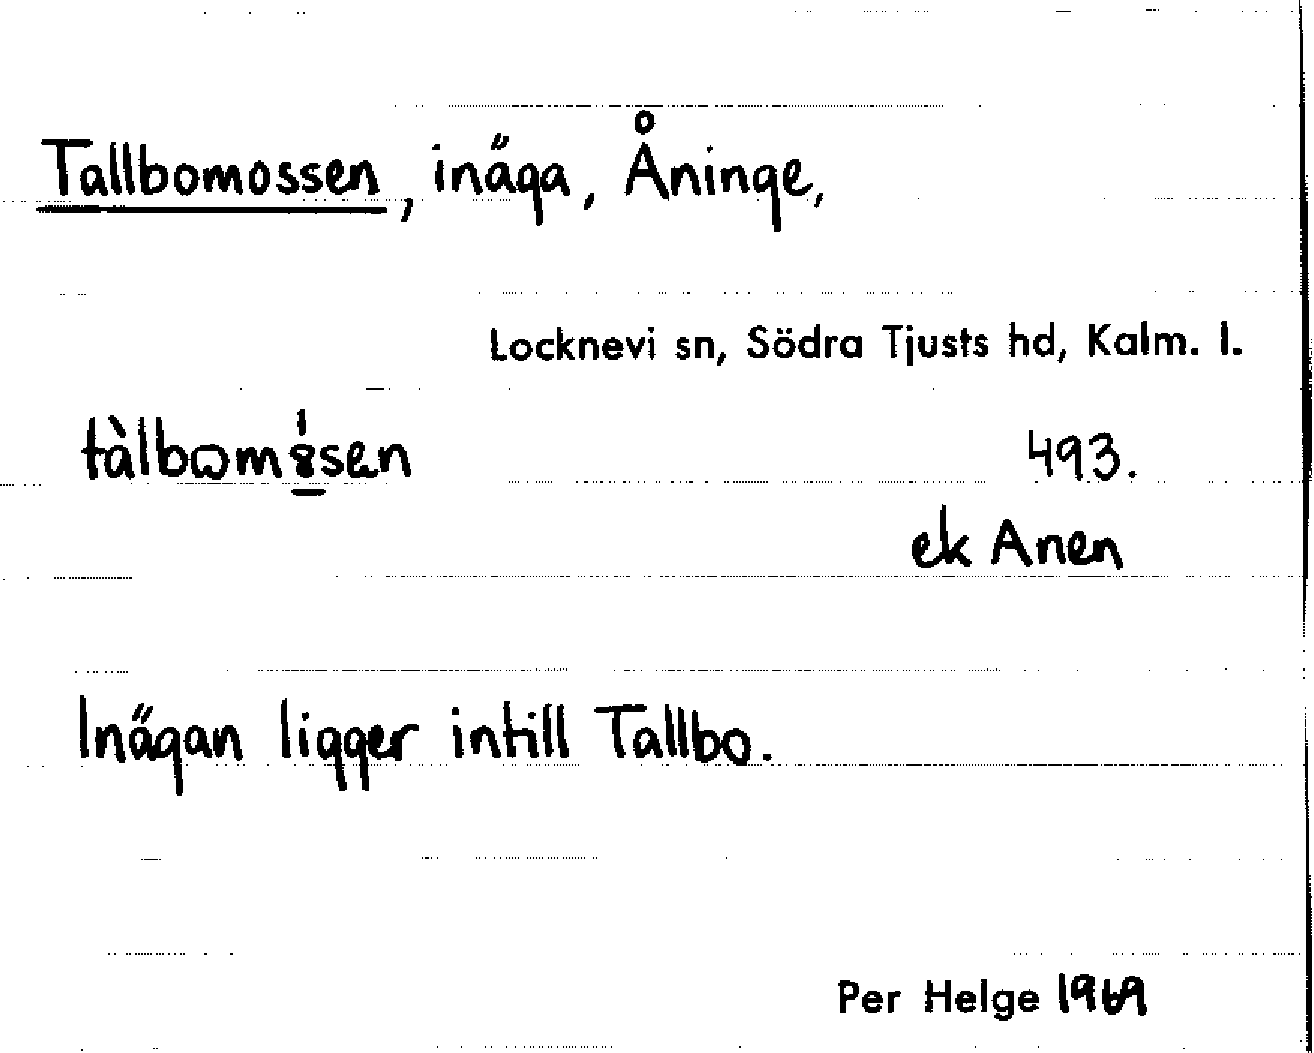 Tallbomossen, inäga, Åninge,
Locknevi sn, Södra Tjusts hd, Kalm. l.
493.
ek Anen
Inägan ligger intill Tallbo.
Per Helge 1969